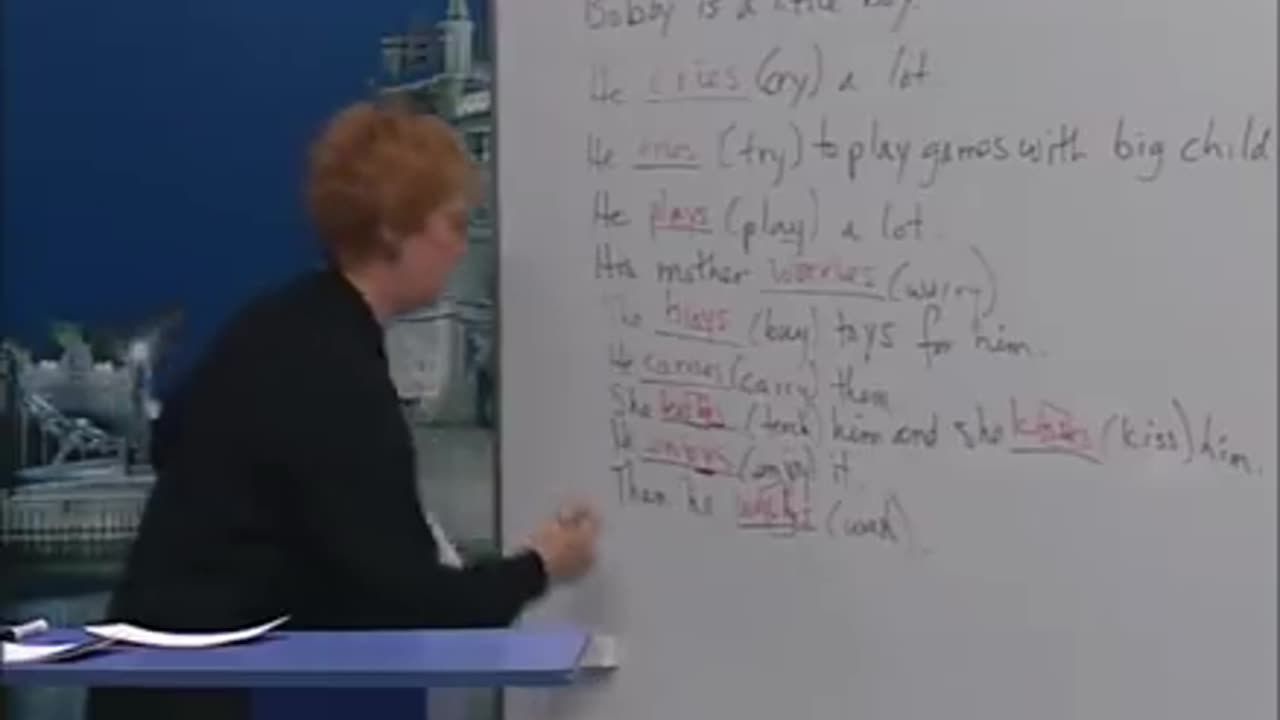 Bobby is a little boy.
He cries (cry) a lot.
He tries (try) to play games with big child
He plays (play) a lot.
His mother worries (worry)
She buys (buy) toys for him.
He carries (carry) them
She (touch) him and she kisses (kiss) him.
He enjoys (enjoy) it.
Then he (wash).